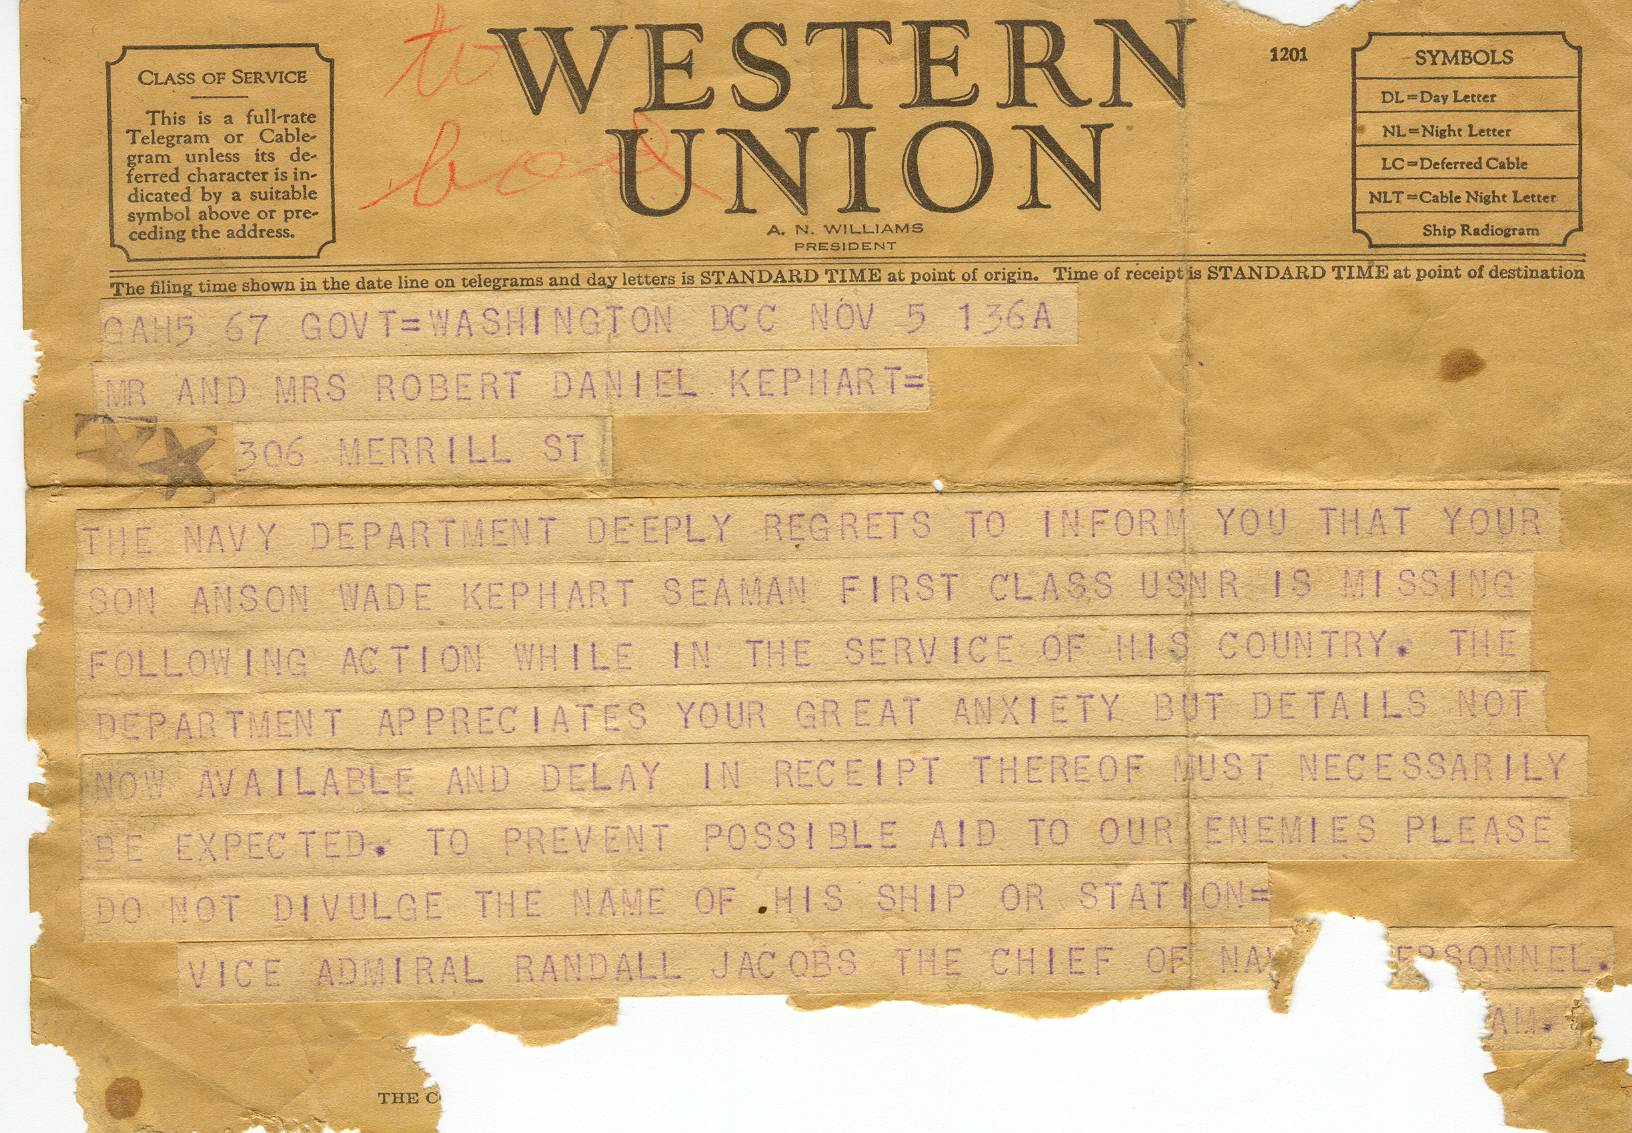 to
bad
WESTERN
UNION
1201
A. N. WILLIAMS
PRESIDENT
CLASS OF SERVICE
This is a full-rate
Telegram or Cable-
gram unless its de-
ferred character is in-
dicated by a suitable
symbol above or pre-
ceding the address.
SYMBOLS
DL=Day Letter
NL=Night Letter
LC=Deferred Cable
NLT=Cable Night Letter
Ship Radiogram
The filing time shown in the date line on telegrams and day letters is STANDARD TIME at point of origin. Time of receipt is STANDARD TIME at point of destination
GAH5 67 GOVT=WASHINGTON DCC NOV 5 136A
MR AND MRS ROBERT DANIEL KEPHART=
306 MERRILL ST
THE NAVY DEPARTMENT DEEPLY REGRETS TO INFORM YOU THAT YOUR
SON ANSON WADE KEPHART SEAMAN FIRST CLASS USNR IS MISSING
FOLLOWING ACTION WHILE IN THE SERVICE OF HIS COUNTRY. THE
DEPARTMENT APPRECIATES YOUR GREAT ANXIETY BUT DETAILS NOT
NOW AVAILABLE AND DELAY IN RECEIPT THEREOF MUST NECESSARILY
BE EXPECTED. TO PREVENT POSSIBLE AID TO OUR ENEMIES PLEASE
DO NOT DIVULGE THE NAME OF HIS SHIP OR STATION=
VICE ADMIRAL RANDALL JACOBS THE CHIEF OF NAV ERSONNEL.
AM.
THE C